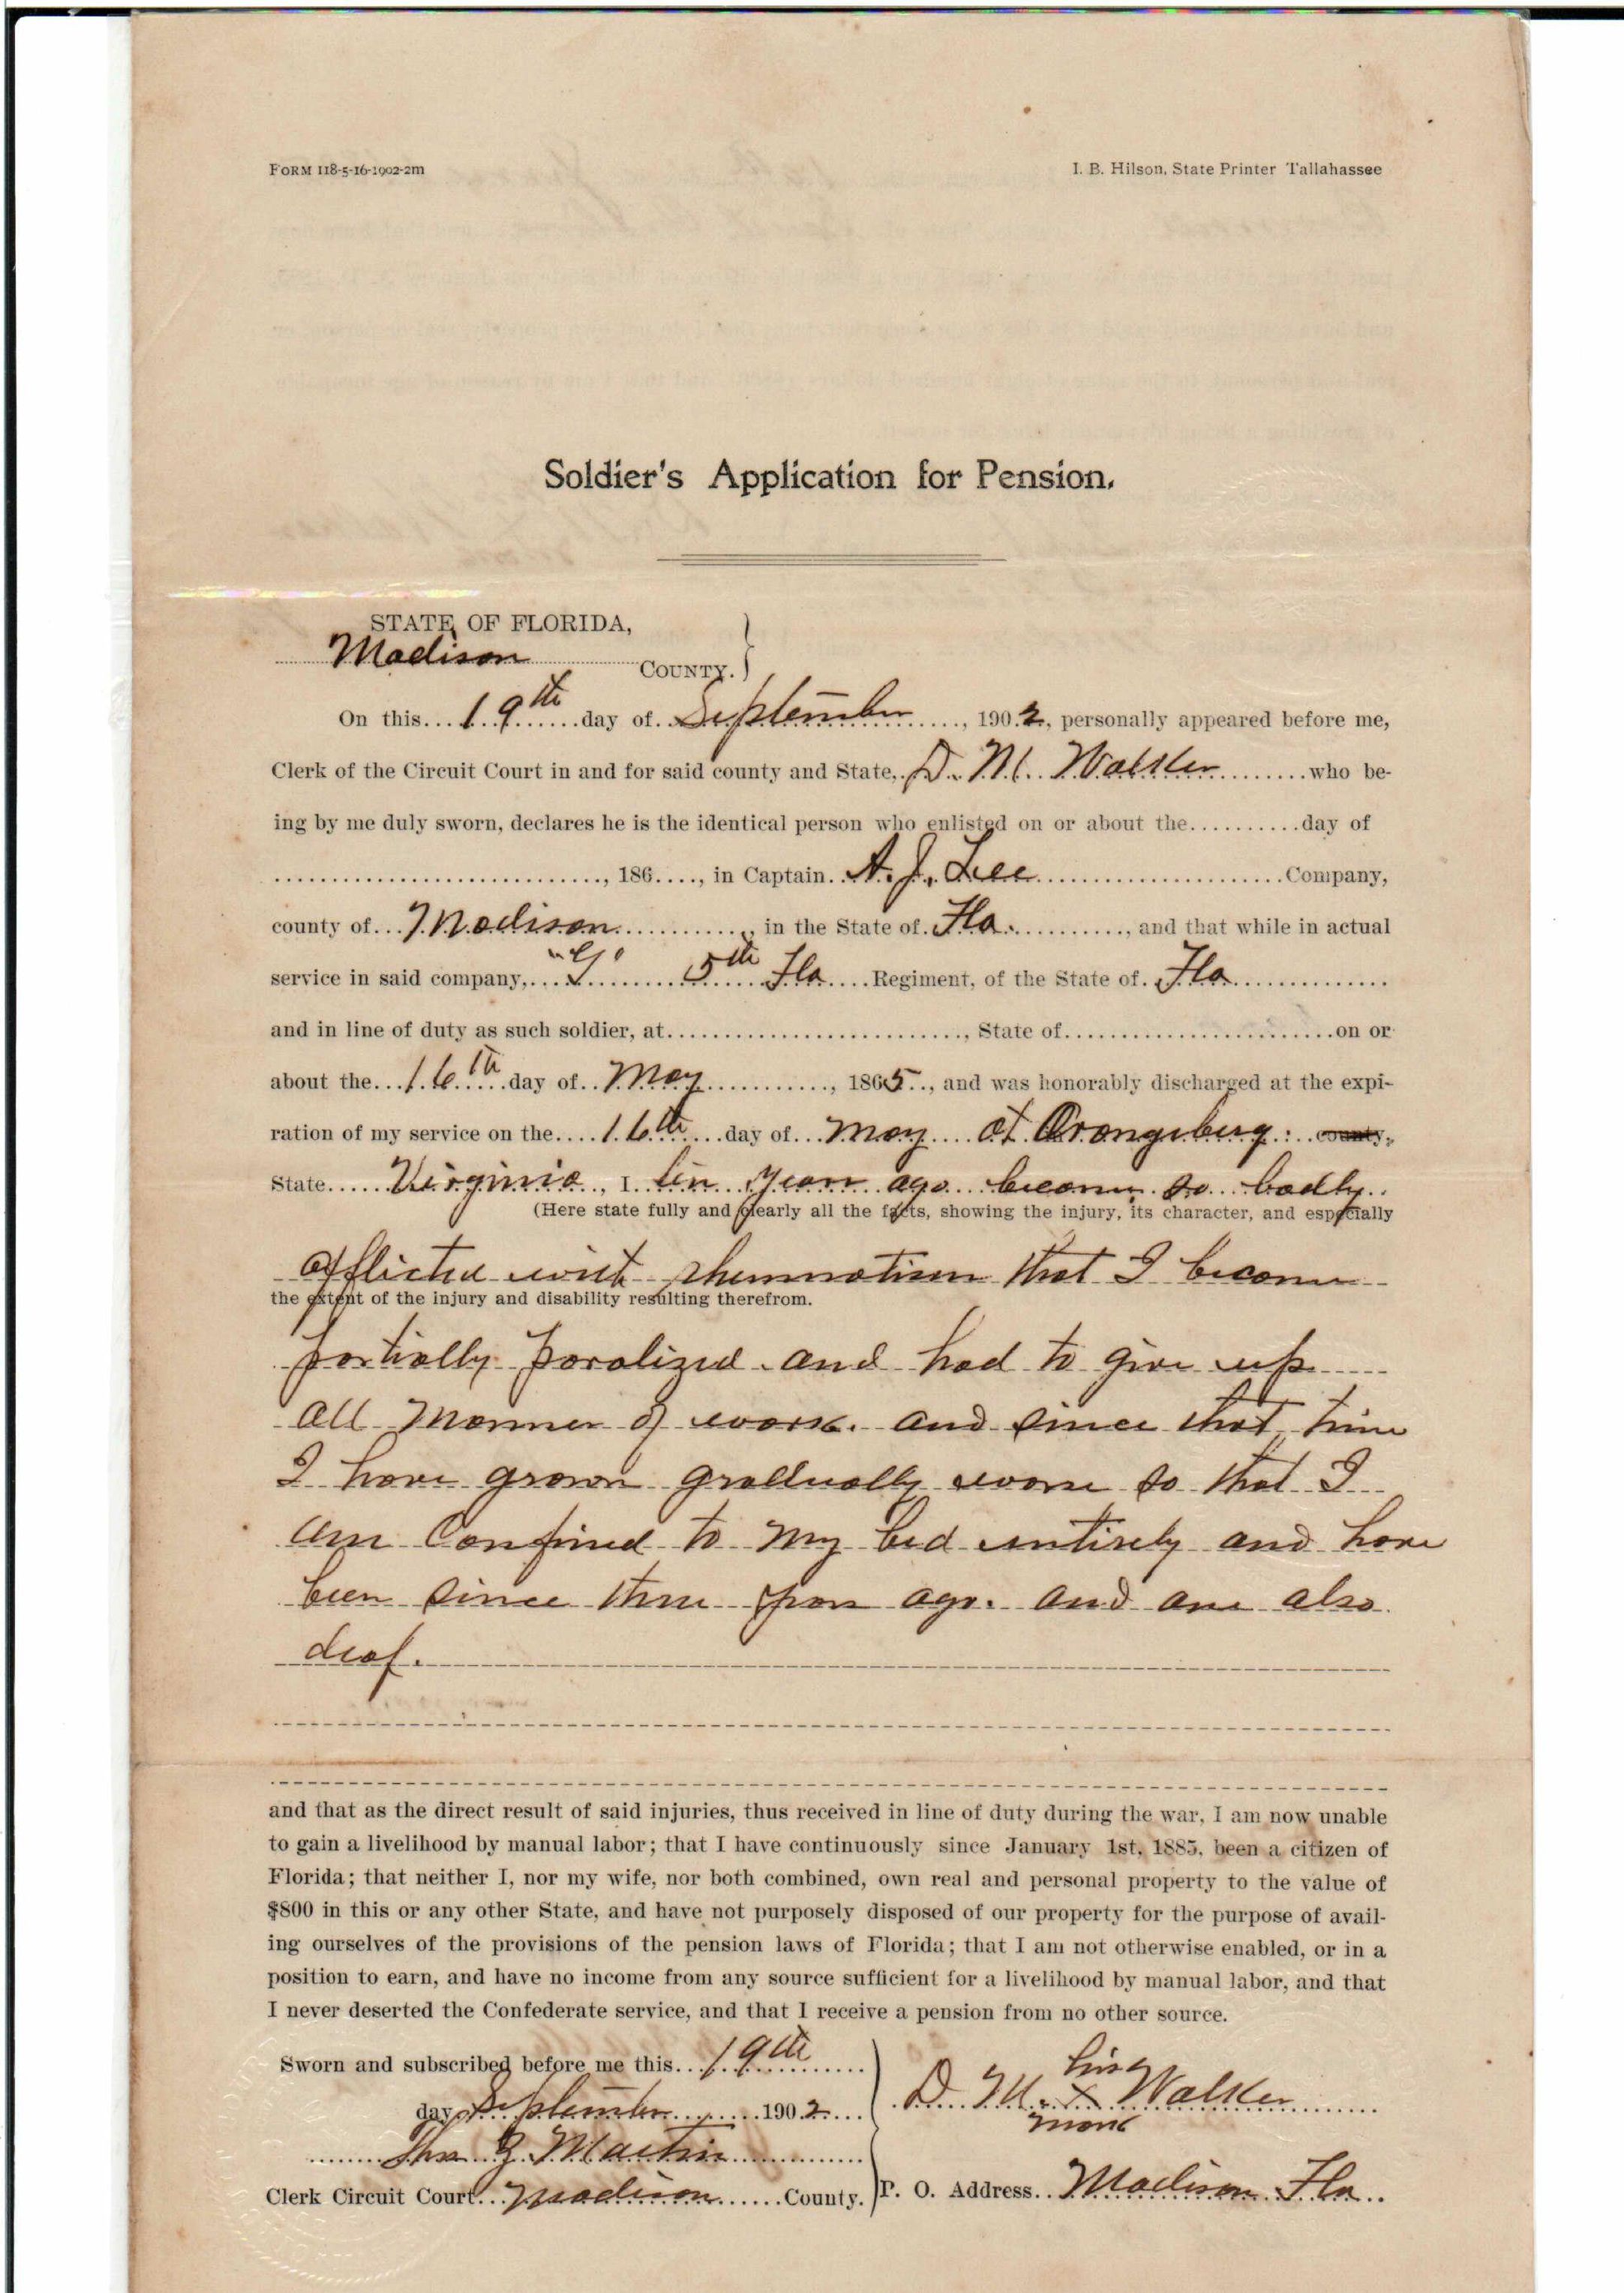 FORM 118-5-16-1902-2m I. B. Hilson, State Printer Tallahassee
Soldier's Application for Pension.
STATE OF FLORIDA,
Madison COUNTY. }
On this 19th day of September, 1902, personally appeared before me,
Clerk of the Circuit Court in and for said county and State, D. M. Walker who be-
ing by me duly sworn, declares he is the identical person who enlisted on or about the..........day of
............................, 186...., in Captain A. J. Lee Company,
county of Madison, in the State of Fla., and that while in actual
service in said company, "G" 5th Fla Regiment, of the State of Fla
and in line of duty as such soldier, at.........................., State of..........................on or
about the 16th day of May, 1865, and was honorably discharged at the expi-
ration of my service on the 16th day of May at Orangeburg: county,
State Virginia, I ten years ago became so badly
(Here state fully and clearly all the facts, showing the injury, its character, and especially
afflicted with rheumatism that I became
the extent of the injury and disability resulting therefrom.
partially paralized and had to give up
all manner of work. and since that time
I have grown gradually worse so that I
am Confined to my bed entirely and have
been since three years ago. and am also
deaf.
and that as the direct result of said injuries, thus received in line of duty during the war, I am now unable
to gain a livelihood by manual labor; that I have continuously since January 1st, 1885, been a citizen of
Florida; that neither I, nor my wife, nor both combined, own real and personal property to the value of
$800 in this or any other State, and have not purposely disposed of our property for the purpose of avail-
ing ourselves of the provisions of the pension laws of Florida; that I am not otherwise enabled, or in a
position to earn, and have no income from any source sufficient for a livelihood by manual labor, and that
I never deserted the Confederate service, and that I receive a pension from no other source.
Sworn and subscribed before me this 19th
day September 1902
Martin
Clerk Circuit Court Madison County.
his
D. M. X Walker
mark
P. O. Address Madison Fla